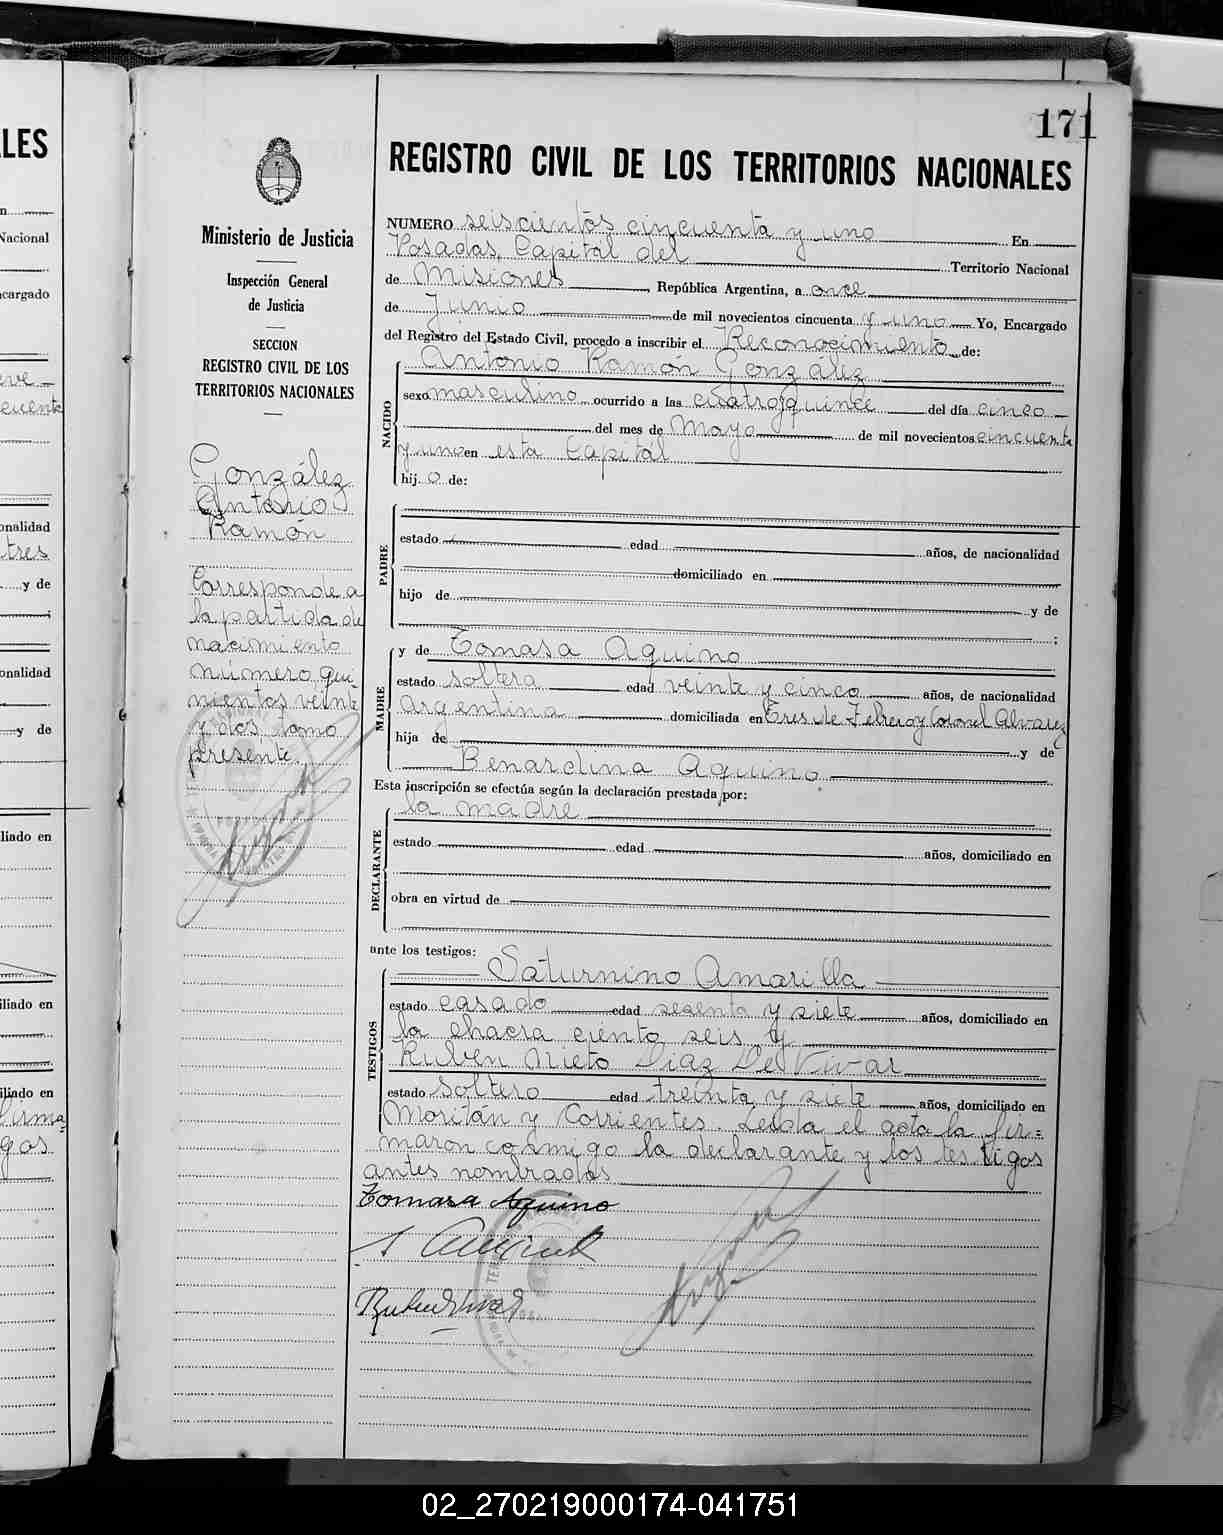 171
REGISTRO CIVIL DE LOS TERRITORIOS NACIONALES
Ministerio de Justicia
Inspección General
de Justicia
SECCION
REGISTRO CIVIL DE LOS
TERRITORIOS NACIONALES
González
Antonio
Ramón
Corresponde a
la partida de
nacimiento
número qui-
nientos veinte
y dos tomo
presente.
NUMERO seiscientos cincuenta y uno En
Posadas, Capital del Territorio Nacional
de Misiones, República Argentina, a once
de Junio de mil novecientos cincuenta y uno Yo, Encargado
del Registro del Estado Civil, procedo a inscribir el Reconocimiento de:
Antonio Ramón González
NACIDO
sexo masculino ocurrido a las cuatro y quince del día cinco
del mes de Mayo de mil novecientos cincuenta
y uno en esta Capitál
hijo de:
PADRE
estado edad años, de nacionalidad
domiciliado en
hijo de y de
;
MADRE
y de Tomasa Aquino
estado soltera edad veinte y cinco años, de nacionalidad
argentina domiciliada en Tres de Febrero y Coronel Alvarez
hija de y de
Benardina Aquino
Esta inscripción se efectúa según la declaración prestada por:
la madre
DECLARANTE
estado edad años, domiciliado en
obra en virtud de
ante los testigos:
Saturnino Amarilla
TESTIGOS
estado casado edad sesenta y siete años, domiciliado en
la chacra ciento seis y
Ruben Nieto Diaz De Vivar
estado soltero edad treinta y siete años, domiciliado en
Moritán y Corrientes. Leida el acta la fir=
maron conmigo la declarante y los testigos
antes nombrados
Tomasa Aquino
LES
n
Nacional
ncargado
eve
cuenta
onalidad
tres
y de
onalidad
y de
liado en
iliado en
iliado en
firma
gos
02_270219000174-041751